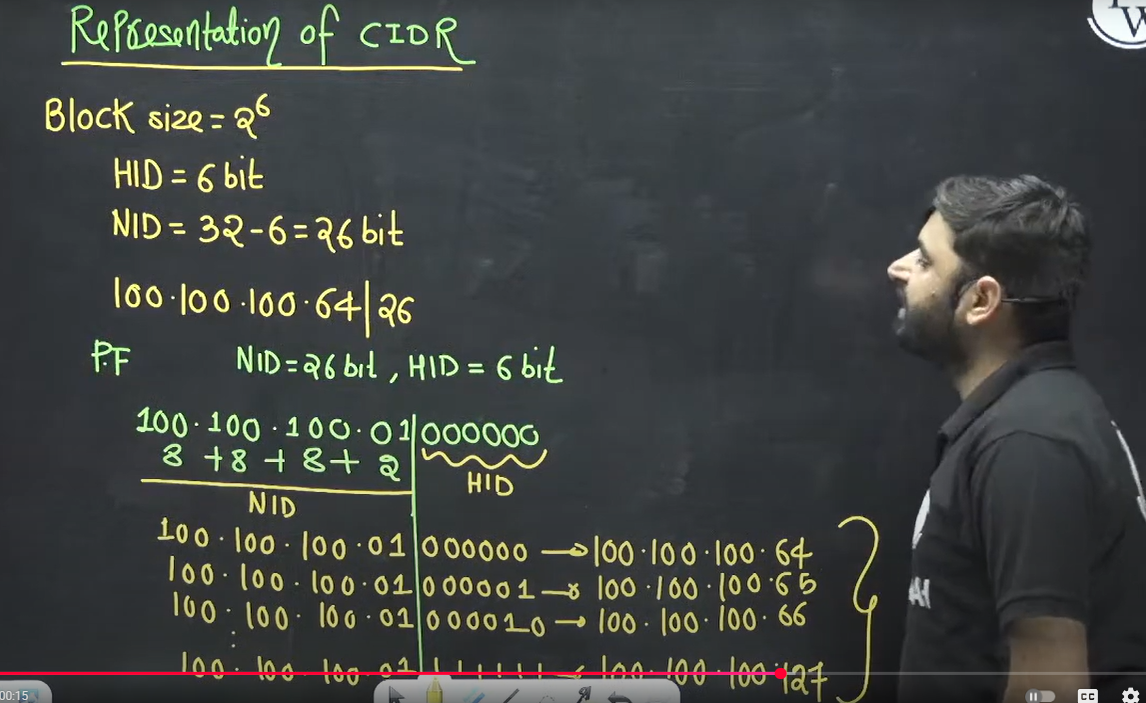 Representation of CIDR
Block size = 2^6
HID = 6 bit
NID = 32-6 = 26 bit
100.100.100.64|26
P.F NID = 26 bit, HID = 6 bit
100.100.100.01|000000
8 + 8 + 8 + 2 HID
NID
100.100.100.01 000000 → 100.100.100.64
100.100.100.01 000001 → 100.100.100.65
100.100.100.01 000010 → 100.100.100.66
:
100.100.100.01 111111 → 100.100.100.127
00:15 CC